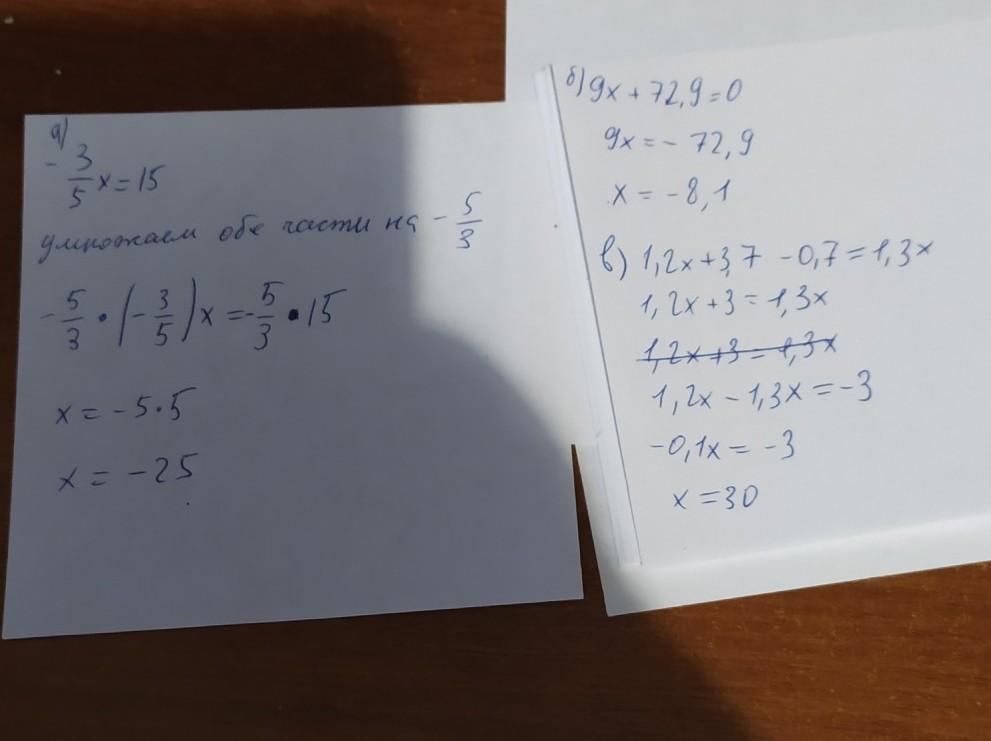 а)
- 3/5 x = 15
умножаем обе части на - 5/3
- 5/3 • (- 3/5) x = - 5/3 • 15
x = - 5 • 5
x = - 25
б) 9x + 72,9 = 0
9x = - 72,9
x = - 8,1
в) 1,2x + 3,7 - 0,7 = 1,3x
1,2x + 3 = 1,3x
1,2x + 3 = 1,3x
1,2x - 1,3x = - 3
-0,1x = -3
x = 30